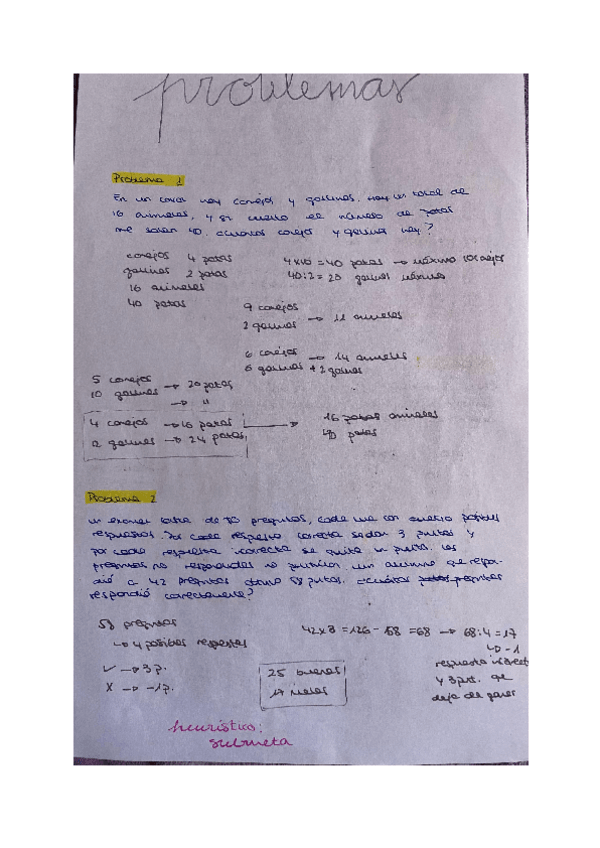 problemas
Problema 1
En un corral hay conejos y gallinas. Hay un total de
16 animales, y si cuento el número de patas
me salen 40. ¿Cuántos conejos y gallinas hay?
conejos 4 patas
gallinas 2 patas
16 animales
40 patas
4x10 = 40 patas → máximo 10 conejos
40:2 = 20 gallinas máximo
9 conejos
2 gallinas → 11 animales
6 conejos
6 gallinas + 2 gallinas → 14 animales
5 conejos
10 gallinas → 20 patas
→ "
4 conejos → 16 patas
12 gallinas → 24 patas
16 patas animales
40 patas
Problema 2
Un examen consta de preguntas, cada una con cuatro posibles
respuestas. Por cada respuesta correcta se dan 3 puntos y
por cada respuesta incorrecta se quita un punto. Las
preguntas no respondidas no puntúan. Un alumno que respon-
dió a 42 preguntas obtuvo 58 puntos. ¿Cuántas preguntas
respondió correctamente?
58 preguntas
↳ 4 posibles respuestas
✓ → 3 p.
X → -1 p.
42x3 = 126 - 58 = 68 → 68:4 = 17
↳ -1
respuesta incorrecta
y 3 pt. que
deja de ganar
25 buenas
17 malas
heurístico:
submeta